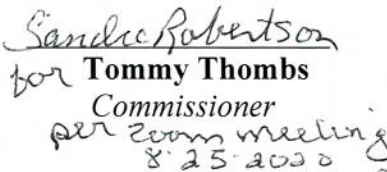 Sandra Robertson
for Tommy Thombs
Commissioner
per zoom meeting
8-25-2020